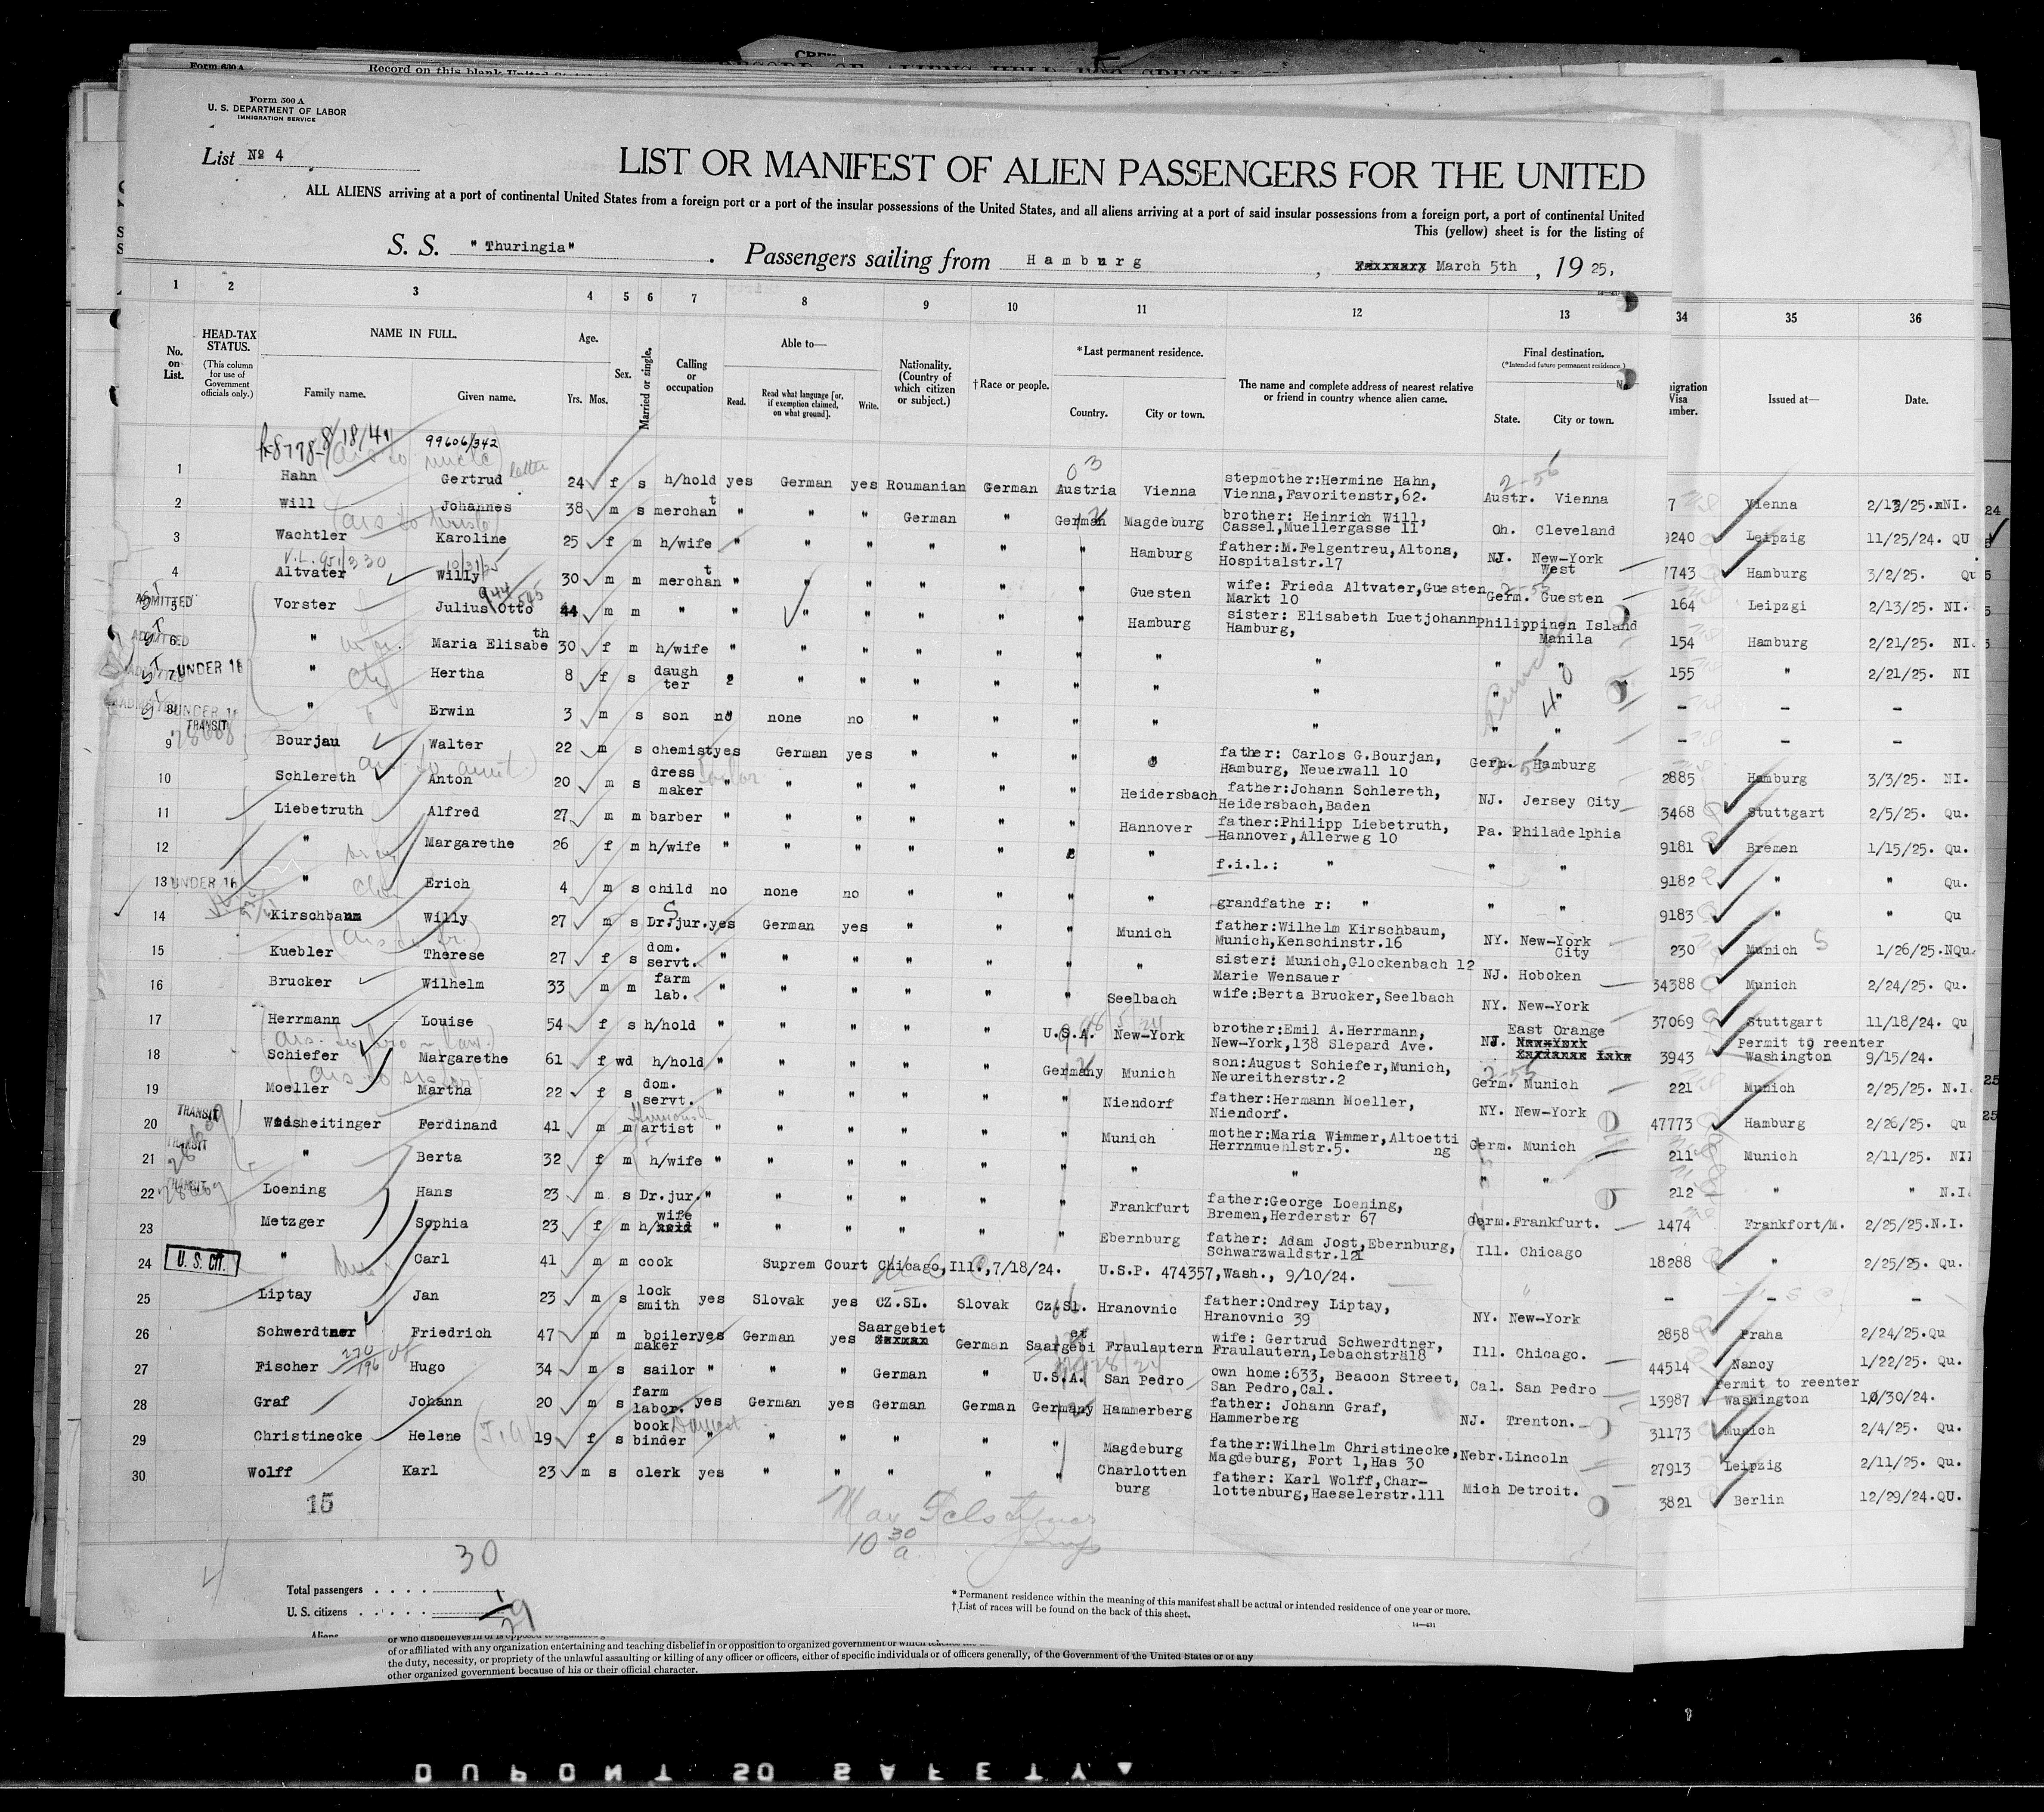 Form 630 A
Record on this blank United States
Form 500 A
U. S. DEPARTMENT OF LABOR
IMMIGRATION SERVICE
List No 4
LIST OR MANIFEST OF ALIEN PASSENGERS FOR THE UNITED
ALL ALIENS arriving at a port of continental United States from a foreign port or a port of the insular possessions of the United States, and all aliens arriving at a port of said insular possessions from a foreign port, a port of continental United
This (yellow) sheet is for the listing of
S. S. "Thuringia" . Passengers sailing from Hamburg , March 5th , 19 25,
1 2 3 4 5 6 7 8 9 10 11 12 13 34 35 36
No. on List.
HEAD-TAX STATUS.
(This column for use of Government officials only.)
NAME IN FULL.
Family name. Given name.
Age.
Yrs. Mos.
Sex.
Married or single.
Calling or occupation
Able to—
Read. Read what language [or, if exemption claimed, on what ground]. Write.
Nationality. (Country of which citizen or subject.)
† Race or people.
*Last permanent residence.
Country. City or town.
The name and complete address of nearest relative or friend in country whence alien came.
Final destination.
(*Intended future permanent residence.)
State. City or town.
Issued at— Date.
8/18/41 99606/342
1 Hahn Gertrud 24 f s h/hold yes German yes Roumanian German Austria Vienna stepmother:Hermine Hahn, Vienna,Favoritenstr,62. Austr. Vienna 7 Vienna 2/13/25. NI.
2 Will Johannes 38 m s merchant " " " German " German Magdeburg brother: Heinrich Will, Cassel,Muellergasse II Oh. Cleveland 9240 Leipzig 11/25/24. QU
3 Wachtler Karoline 25 f m h/wife " " " " " " Hamburg father:M.Felgentreu,Altona, Hospitalstr.17 NJ. New-York West 7743 Hamburg 3/2/25. Qu
V.L. 951/330 10/31/25
4 Altvater Willy 30 m m merchant " " " " " " Guesten wife: Frieda Altvater,Guesten Markt 10 Germ. Guesten 164 Leipzgi 2/13/25. NI.
5 ADMITTED Vorster Julius Otto 44 m m " " " " " " " Hamburg sister: Elisabeth Luetjohann Hamburg, Philippinen Island Manila 154 Hamburg 2/21/25. NI.
6 ADMITTED " Maria Elisabeth 30 f m h/wife " " " " " " " " " " 155 " 2/21/25. NI
7 UNDER 16 " Hertha 8 f s daughter " " " " " " " " " " - - -
8 UNDER 16 " Erwin 3 m s son no none no " " " " " " " - - -
9 TRANSIT Bourjau Walter 22 m s chemist yes German yes " " " " father: Carlos G.Bourjan, Hamburg, Neuerwall 10 Germ. Hamburg 2885 Hamburg 3/3/25. NI.
10 Schlereth Anton 20 m s dress maker " " " " " " Heidersbach father:Johann Schlereth, Heidersbach,Baden NJ. Jersey City 3468 Stuttgart 2/5/25. Qu.
11 Liebetruth Alfred 27 m m barber " " " " " " Hannover father:Philipp Liebetruth, Hannover,Allerweg 10 Pa. Philadelphia 9181 Bremen 1/15/25. Qu.
12 " Margarethe 26 f m h/wife " " " " " " " f.i.l.: " " " 9182 " " Qu.
13 UNDER 16 " Erich 4 m s child no none no " " " " grandfathe r: " " " 9183 " " Qu
14 Kirschbaum Willy 27 m s Dr.jur. yes German yes " " " Munich father:Wilhelm Kirschbaum, Munich,Kenschinstr.16 NY. New-York City 230 Munich 1/26/25.NQu.
15 Kuebler Therese 27 f s dom. servt. " " " " " " " sister: Munich,Glockenbach 12 Marie Wensauer NJ. Hoboken 34388 Munich 2/24/25. Qu.
16 Brucker Wilhelm 33 m m farm lab. " " " " " " Seelbach wife:Berta Brucker,Seelbach NY. New-York 37069 Stuttgart 11/18/24. Qu
17 Herrmann Louise 54 f s h/hold " " " " " U.S.A. New-York brother:Emil A.Herrmann, New-York,138 Slepard Ave. NJ. East Orange 3943 Permit to reenter Washington 9/15/24.
18 Schiefer Margarethe 61 f wd h/hold " " " " " Germany Munich son:August Schiefer,Munich, Neureitherstr.2 Germ. Munich 221 Munich 2/25/25. N.I.
19 Moeller Martha 22 f s dom. servt. " " " " " " Niendorf father:Hermann Moeller, Niendorf. NY. New-York 47773 Hamburg 2/26/25. Qu
20 TRANSIT Weisheitinger Ferdinand 41 m m artist " " " " " " Munich mother:Maria Wimmer,Altoetting Herrnmuehlstr.5. Germ. Munich 211 Munich 2/11/25. NI
21 TRANSIT " Berta 32 f m h/wife " " " " " " " " " " 212 " " N.I.
22 TRANSIT Loening Hans 23 m s Dr.jur. " " " " " " Frankfurt father:George Loening, Bremen,Herderstr 67 Germ. Frankfurt. 1474 Frankfort/M. 2/25/25.N.I.
23 Metzger Sophia 23 f m h/wife " " " " " " Ebernburg father: Adam Jost,Ebernburg, Schwarzwaldstr.121 Ill. Chicago 18288 " 2/25/25. Qu.
24 U.S. CIT. " Carl 41 m m cook Suprem Court Chicago,Ill.,7/18/24. U.S.P. 474357,Wash., 9/10/24. - -
25 Liptay Jan 23 m s lock smith yes Slovak yes CZ.SL. Slovak Cz.Sl. Hranovnic father:Ondrey Liptay, Hranovnic 39 NY. New-York 2858 Praha 2/24/25.Qu
26 Schwerdtner Friedrich 47 m m boiler maker yes German yes Saargebiet German Saargebiet Fraulautern wife: Gertrud Schwerdtner, Fraulautern,Lebachsträl8 Ill. Chicago. 44514 Nancy 1/22/25. Qu.
27 Fischer Hugo 34 m s sailor " " " German " U.S.A. San Pedro own home:633, Beacon Street, San Pedro,Cal. Cal. San Pedro 13987 Permit to reenter Washington 10/30/24.
28 Graf Johann 20 m s farm labor. yes German yes German German Germany Hammerberg father: Johann Graf, Hammerberg NJ. Trenton. 31173 Munich 2/4/25. Qu.
29 Christinecke Helene 19 f s book binder " " " " " " Magdeburg father:Wilhelm Christinecke, Magdeburg, Fort 1,Has 30 Nebr. Lincoln 27913 Leipzig 2/11/25. Qu.
30 Wolff Karl 23 m s clerk yes " " " " " Charlottenburg father: Karl Wolff,Charlottenburg,Haeselerstr.111 Mich Detroit. 3821 Berlin 12/29/24.QU.
15
10 30 a
Total passengers . . . . 30
U. S. citizens . . . . . 1
29
Aliens
* Permanent residence within the meaning of this manifest shall be actual or intended residence of one year or more.
† List of races will be found on the back of this sheet.
14—431
of or affiliated with any organization entertaining and teaching disbelief in or opposition to organized government or which
the duty, necessity, or propriety of the unlawful assaulting or killing of any officer or officers, either of specific individuals or of officers generally, of the Government of the United States or of any
other organized government because of his or their official character.
DUPONT SAFETY